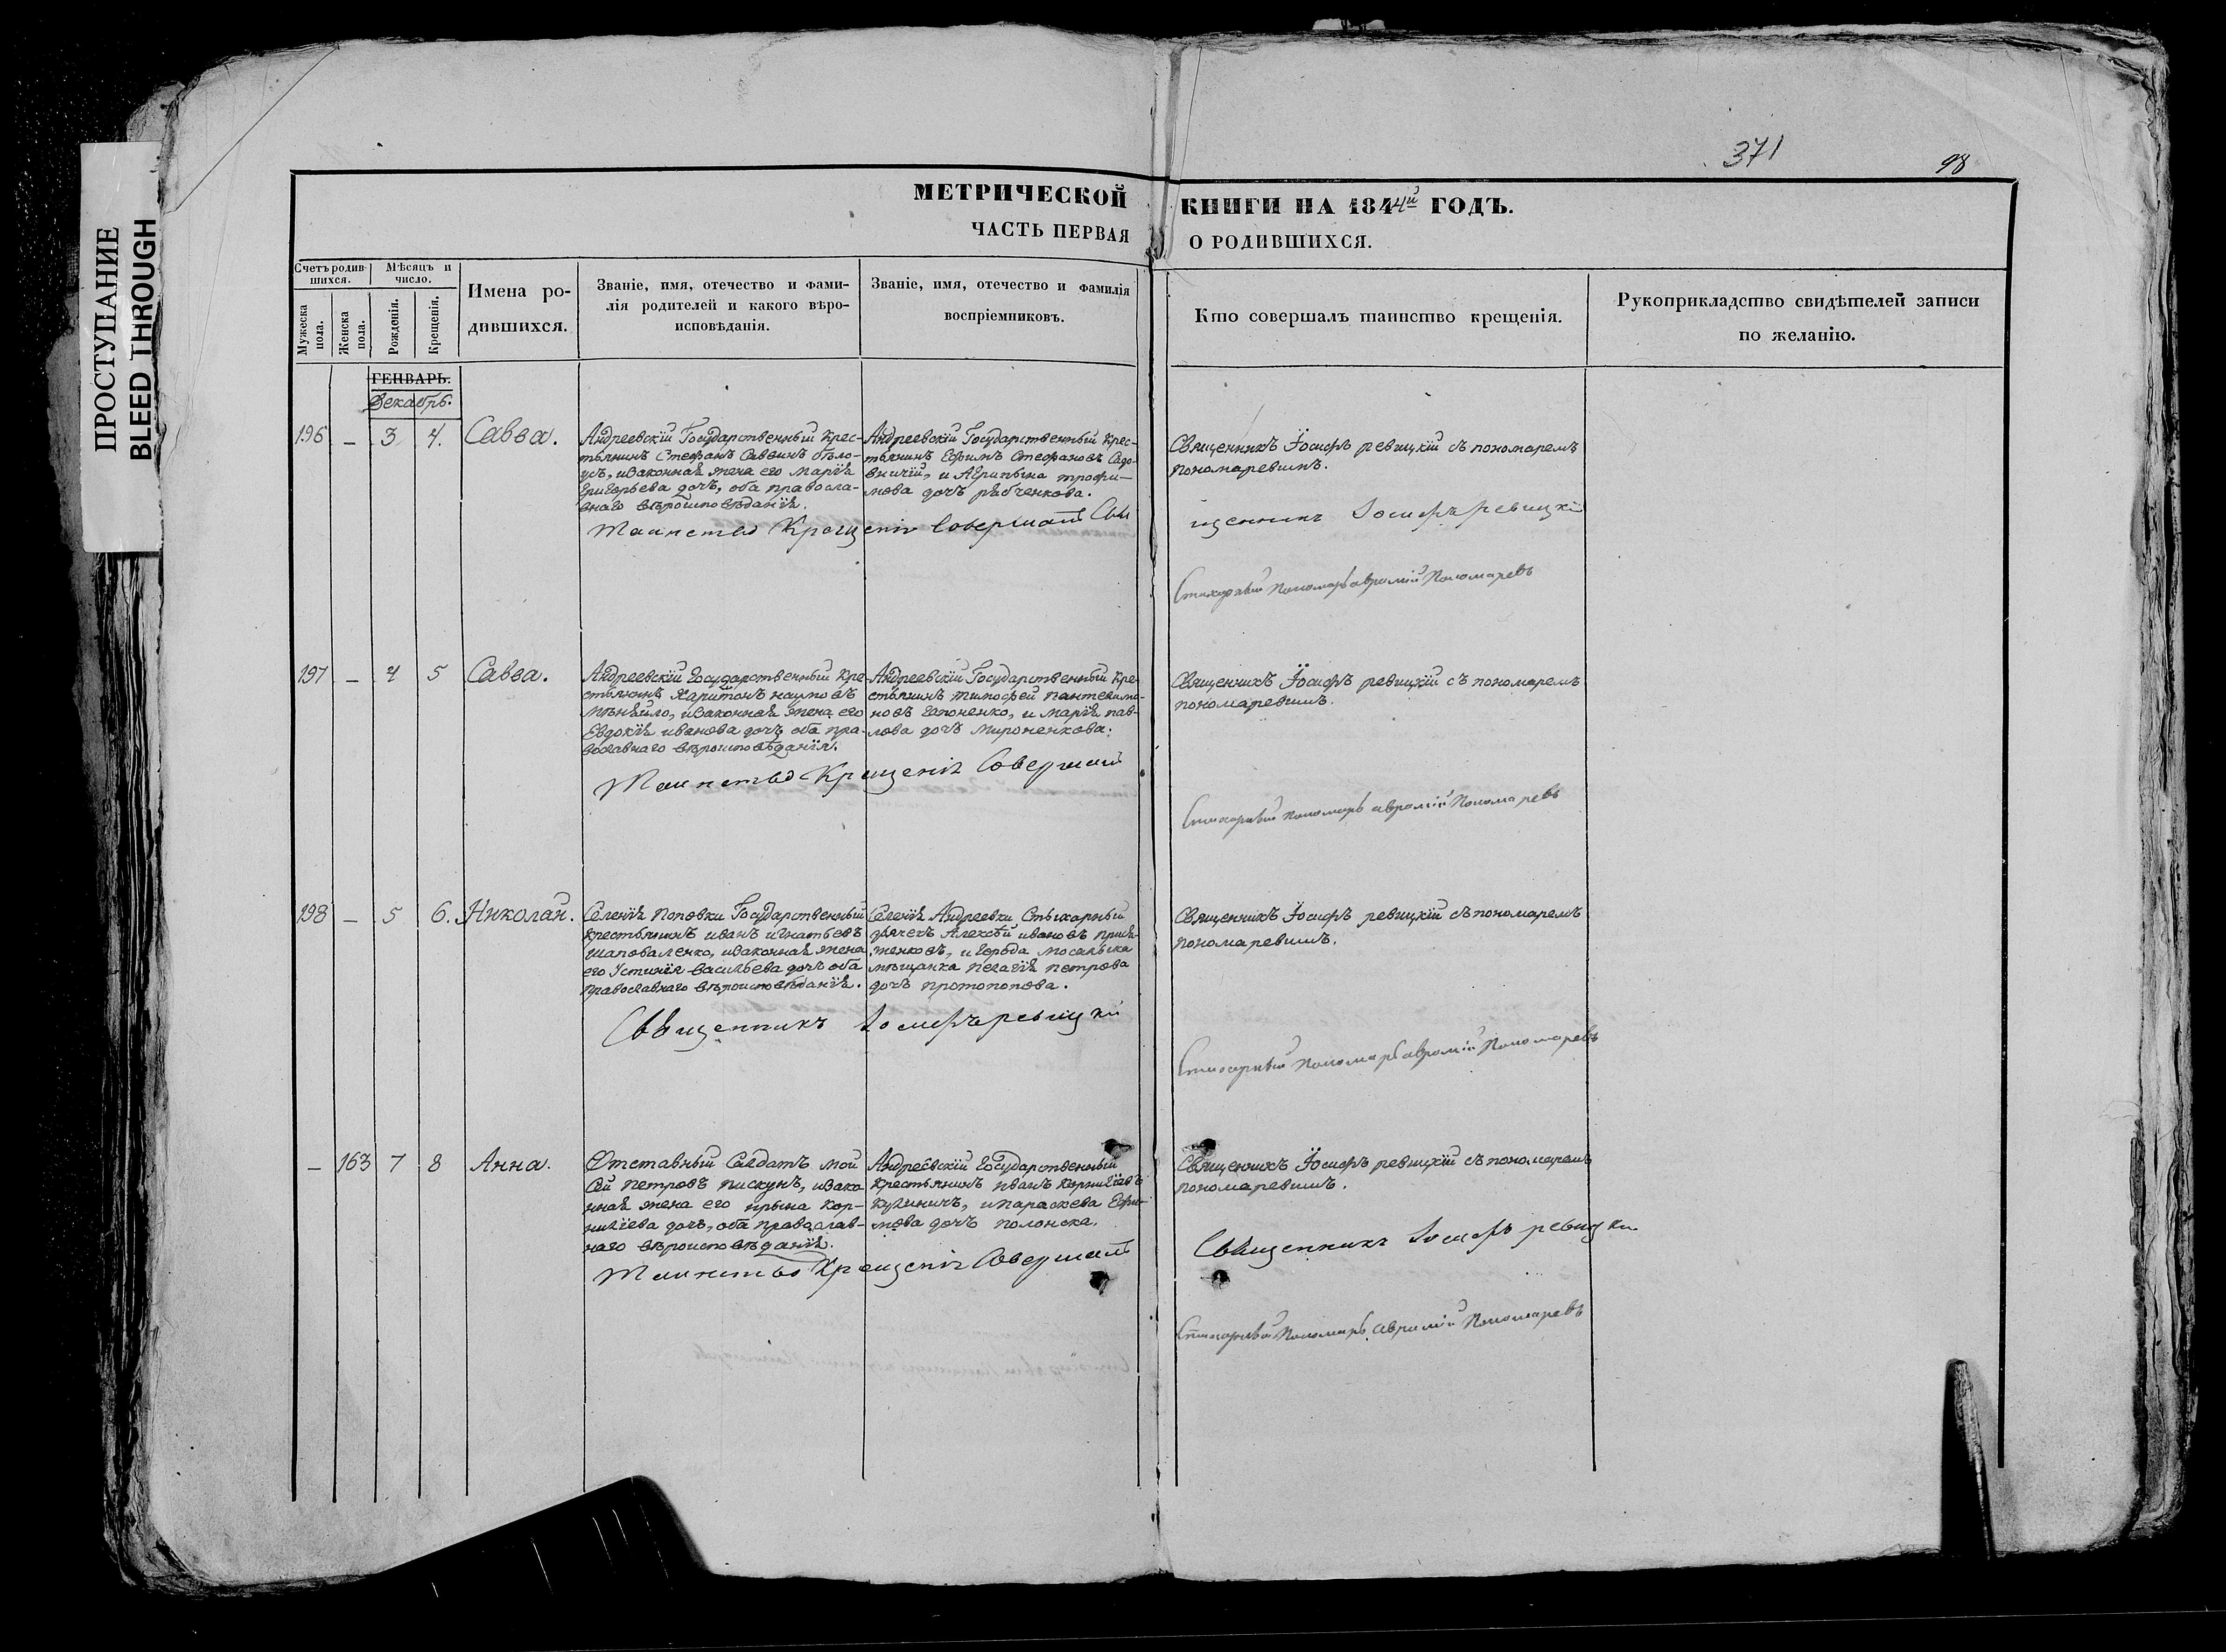 ПРОСТУПАНИЕ
BLEED THROUGH
371
98
МЕТРИЧЕСКОЙ
КНИГИ НА 1844й ГОДЪ.
ЧАСТЬ ПЕРВАЯ
О РОДИВШИХСЯ.
Счетъ родив-
шихся.
Мужеска
пола.
Женска
пола.
Мѣсяцъ и
число.
Рожденія.
Крещенія.
Имена ро-
дившихся.
Званіе, имя, отечество и фами-
лія родителей и какого вѣро-
исповѣданія.
Званіе, имя, отечество и фамилія
воспріемниковъ.
Кто совершалъ таинство крещенія.
Рукоприкладство свидѣтелей записи
по желанію.
ГЕНВАРЬ.
Декабрь.
196 — 3 4. Савва.
Андреевскій Государственный Крес-
тьянинъ Стефанъ Саввинъ
изаконная жена его Марія
Григорьева дочь, оба правосла-
внаго вѣроисповѣданія.
Андреевскій Государственный Крес-
тьянинъ Ефимъ Стефановъ Садо-
вничій, и Агрипына трофи-
мова дочь рябченкова.
Священникъ Іосифъ ревицкій съ пономаремъ
пономаревимъ.
Таинство Крещенія Совершалъ Свя
щенникъ Іосифъ ревицкій
Стихарный Пономарь аврамій Пономаревъ
197 — 4 5 Савва.
Андреевскій Государственный Кре-
стьянинъ Харитонъ наумовъ
изаконная жена его
Евдокія иванова дочь оба пра-
вославнаго вѣроисповѣданія.
Андреевскій Государственный Кре-
стьянинъ тимофей пантелимо-
новъ Гапоненко, и марія пав-
лова дочь мироненкова.
Священникъ Іосифъ ревицкій съ пономаремъ
пономаревимъ.
Таинство Крещенія Совершалъ
Стихарный Пономарь аврамій Пономаревъ
198 — 5 6. Николай.
Селенія Поповки Государственный
Крестьянинъ иванъ игнатьевъ
шаповаленко, изаконная жена
его Устинія васильева дочь оба
православнаго вѣроисповѣданія.
Селенія Андреевки Стихарный
дячекъ Алексѣй ивановъ
и города
мѣщанка пелагія петрова
дочь протопопова.
Священникъ Іосифъ ревицкій съ пономаремъ
пономаревимъ.
Священникъ Іосифъ ревицкій
Стихарный Пономарь аврамій Пономаревъ
— 163 7 8 Анна.
Отставный Салдатъ мои
сей петровъ пискунъ, изако
нная жена его ирына кор-
ниліева дочь, оба православ-
наго вѣроисповѣданія.
Андреевскій Государственный
крестьянинъ иванъ корниліевъ
и параскева Ефи-
мова дочь полонска.
Священникъ Іосифъ ревицкій съ пономаремъ
пономаревимъ.
Таинство Крещенія Совершалъ
Священникъ Іосифъ ревицки
Стихарный Пономарь аврамій Пономаревъ